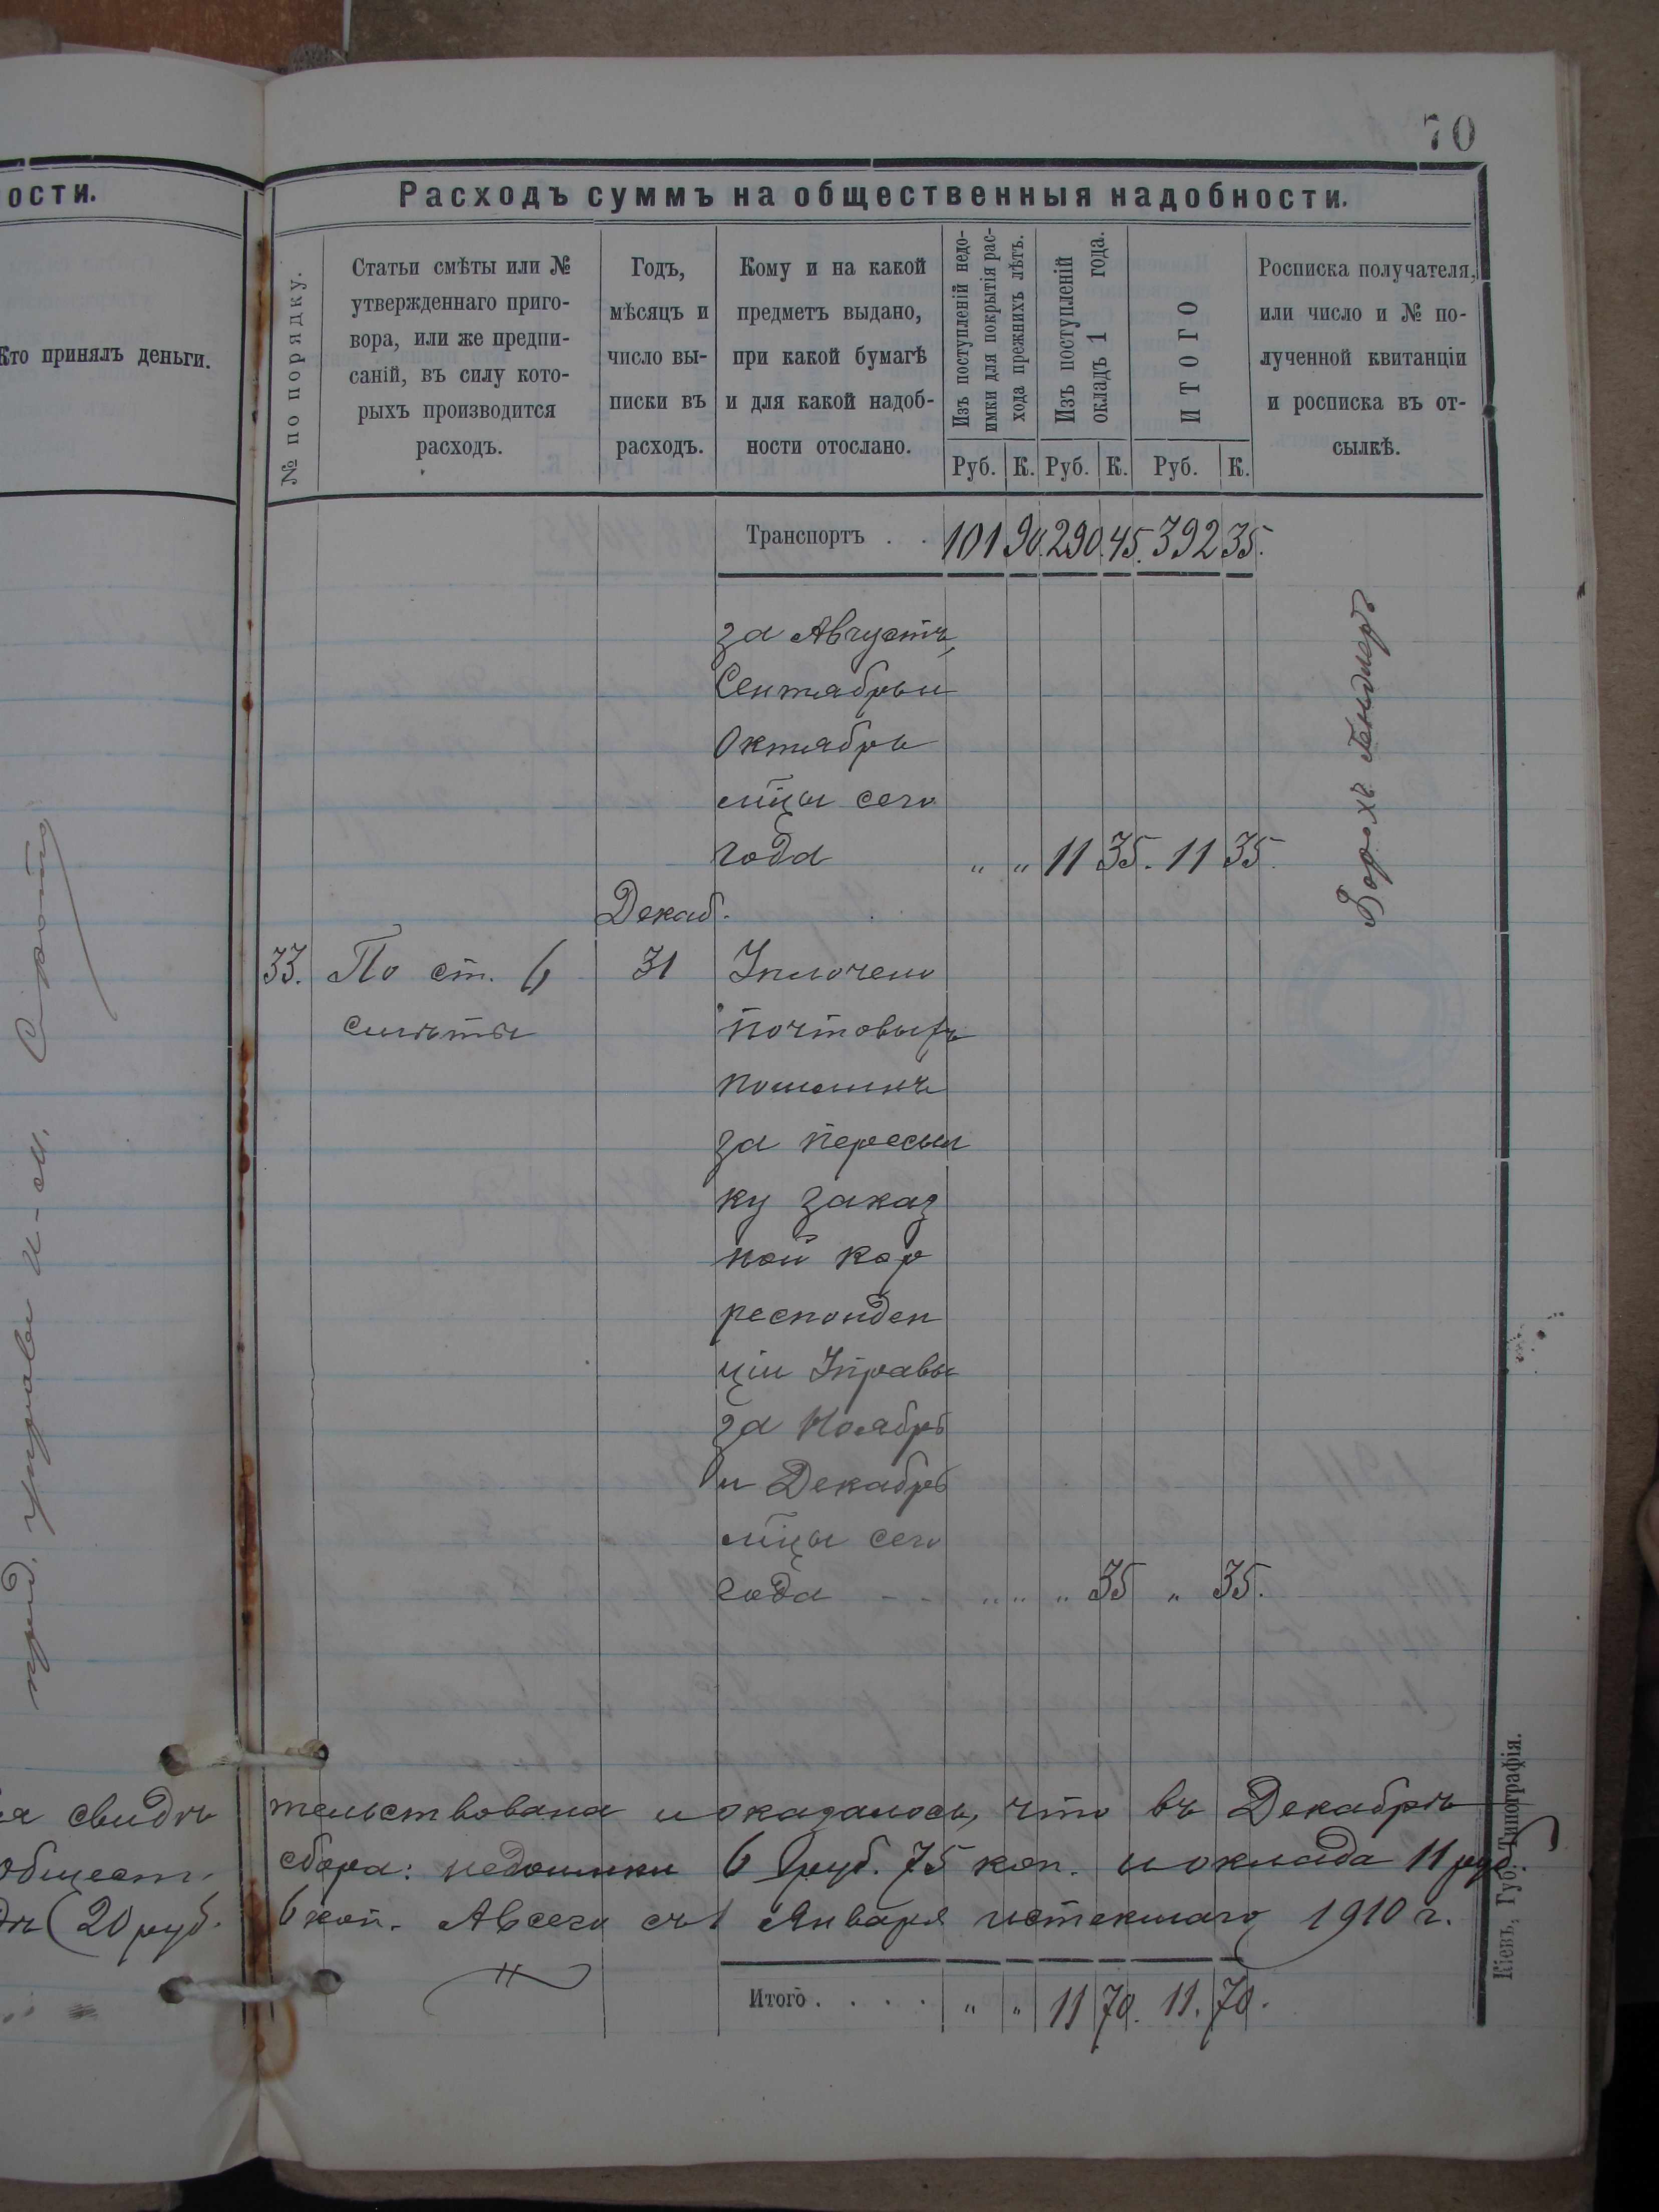 70
ости.
Кто принялъ деньги.
Расходъ суммъ на общественныя надобности.
№ по порядку.
Статьи смѣты или №
утвержденнаго приго-
вора, или же предпи-
саній, въ силу кото-
рыхъ производится
расходъ.
Годъ,
мѣсяцъ и
число вы-
писки въ
расходъ.
Кому и на какой
предметъ выдано,
при какой бумагѣ
и для какой надоб-
ности отослано.
Изъ поступленій недо-
имки для покрытія рас-
хода прежнихъ лѣтъ.
Изъ поступленій
окладъ 1 года.
ИТОГО
Росписка получателя,
или число и № по-
лученной квитанціи
и росписка въ от-
сылкѣ.
Руб. К. Руб. К. Руб. К.
Транспортъ . . 101 90. 290. 45. 392 35.
за Августъ,
Сентябрь и
Октябрь
мцы сего
года „ „ 11 35. 11 35.
Борохъ Гендлеръ
Декаб.
33. По ст. 6 31 Уплочено
смѣты почтовыхъ
пошлинъ
за пересыл
ку заказ
ной кор
респонден
ціи Управы
за Ноябрь
и Декабрь
мцы сего
года - - „ „ „ 35 „ 35.
свидѣ тельствована и оказалось, что въ Декабрѣ
общест. сбора: недоимки 6 руб. 75 коп. и оклада 11 руб.
(20 руб. 6 коп. А всего съ 1 Января истекшаго 1910 г.
Итого . . . . „ „ 11 70. 11. 70.
Кіевъ, Губ. Типографія.